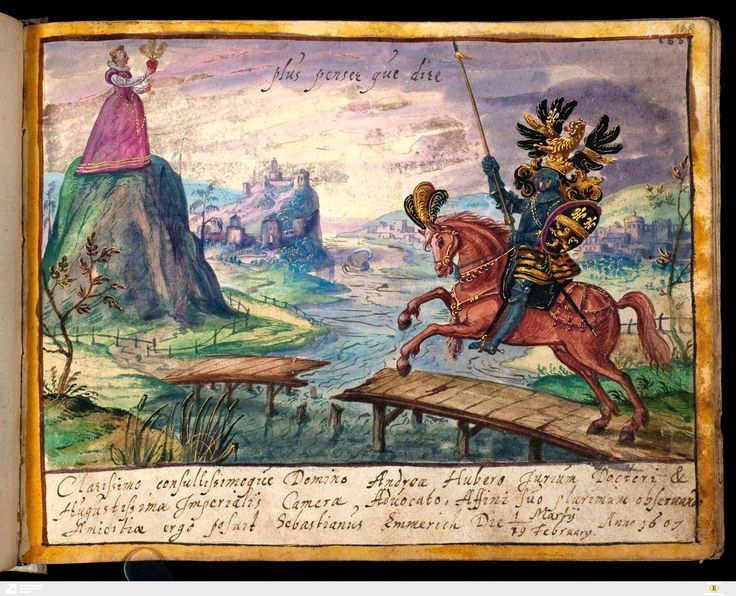 168
plus penser que dire
Clarissimo consultissimoque Domino Andreæ Hubero Jurium Doctori &
Augustissimæ Imperialis Cameræ Advocato, Affini suo plurimum observando
Amicitiæ ergo posuit Sebastianus Emmerich Die 1 Martij
19 February. Anno 1607